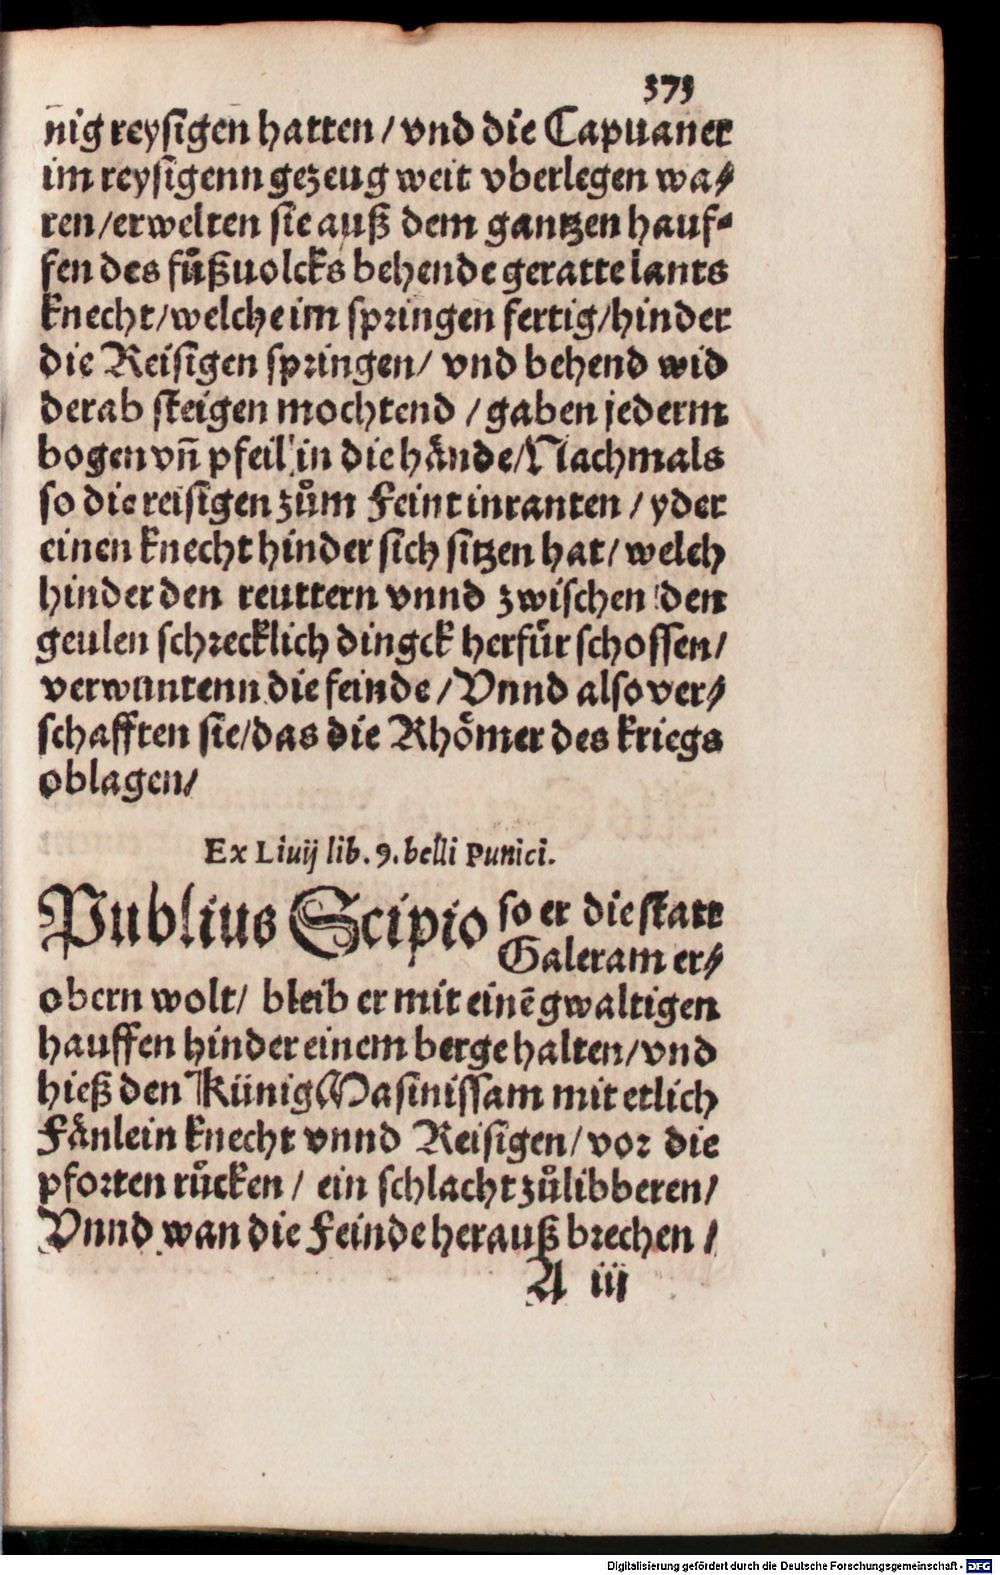 373
nig reysigen hatten / vnd die Capuaner
im reysigenn gezeug weit vberlegen wa⸗
ren/erwelten sie auß dem gantzen hauf⸗
fen des fůßuolcks behende geratte lants
knecht/welche im springen fertig/hinder
die Reisigen springen/ vnd behend wid
derab steigen mochtend / gaben jederm
bogen vn̄ pfeil in die hånde/Nachmals
so die reisigen zům Feint inranten / yder
einen knecht hinder sich sitzen hat/ welch
hinder den reuttern vnnd zwischen den
geulen schrecklich dingck herfůr schossen/
verwuntenn die feinde / Vnnd also ver⸗
schafften sie/das die Rhômer des kriegs
oblagen/
Ex Liuij lib. 9. belli Punici.
Publius Scipio so er die statt
Galeram er⸗
obern wolt/ bleib er mit einē gwaltigen
hauffen hinder einem berge halten/vnd
hieß den Künig Masinissam mit etlich
Fånlein knecht vnnd Reisigen/ vor die
pforten růcken / ein schlacht zůlibberen/
Vnnd wan die Feinde herauß brechen /
A iij
Digitalisierung gefördert durch die Deutsche Forschungsgemeinschaft - DFG